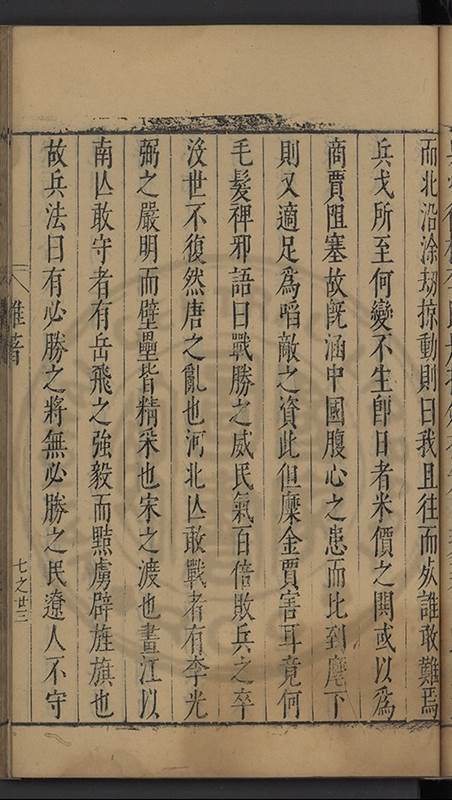 而北沿涂刼掠動則曰我且往而矣誰敢難焉
兵戈所至何變不生卽日者米價之閧或以爲
商賈阻塞故旣涵中國腹心之患而比到麾下
則又適足爲啗敵之資此但糜金賈害耳竟何
毛髮裨邪語曰戰勝之威民氣百倍敗兵之卒
沒世不復然唐之亂也河北亾敢戰者有李光
弼之嚴明而壁壘皆精采也宋之渡也畫江以
南亾敢守者有岳飛之強毅而黠虜辟旌旗也
故兵法曰有必勝之將無必勝之民遼人不守
雜著
七之廿三